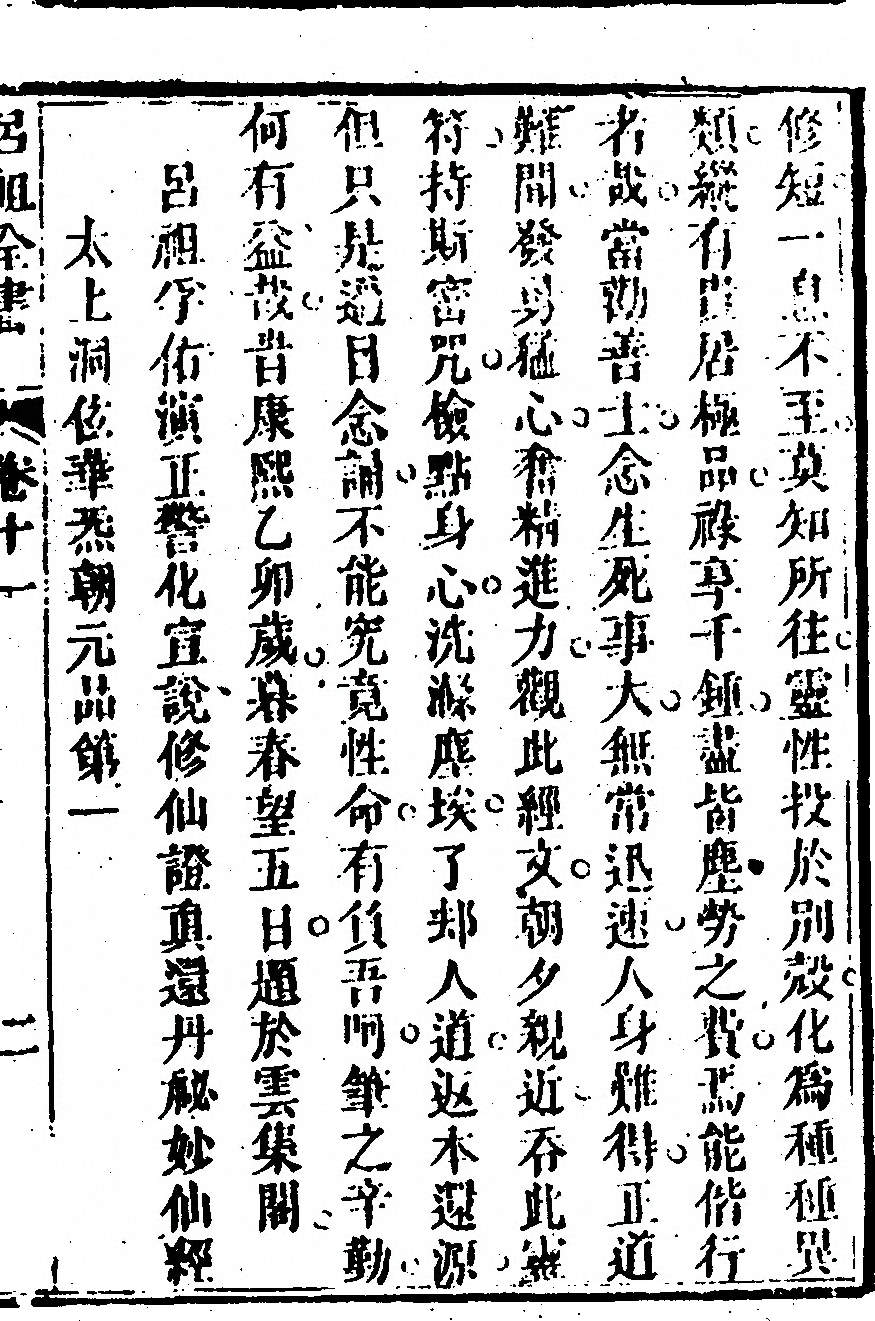 修短一息不至莫知所往靈性投於別殼化爲種種異
類縱有貴居極品祿享千鍾盡皆塵勞之費焉能偕行
者哉當勸善士念生死事大無常迅速人身難得正道
難聞發勇猛心奮精進力觀此經文朝夕親近吞此靈
符持斯密咒檢點身心洗滌塵埃了却人道返本還源
但只是過日念誦不能究竟性命有負吾呵筆之辛勤
何有益哉昔康熙乙卯歲暮春望五日題於雲集閣
呂祖孚佑演正警化宣說修仙證眞還丹秘妙仙經
太上洞仾華炁朝元品第一
呂祖全書 卷十一 二